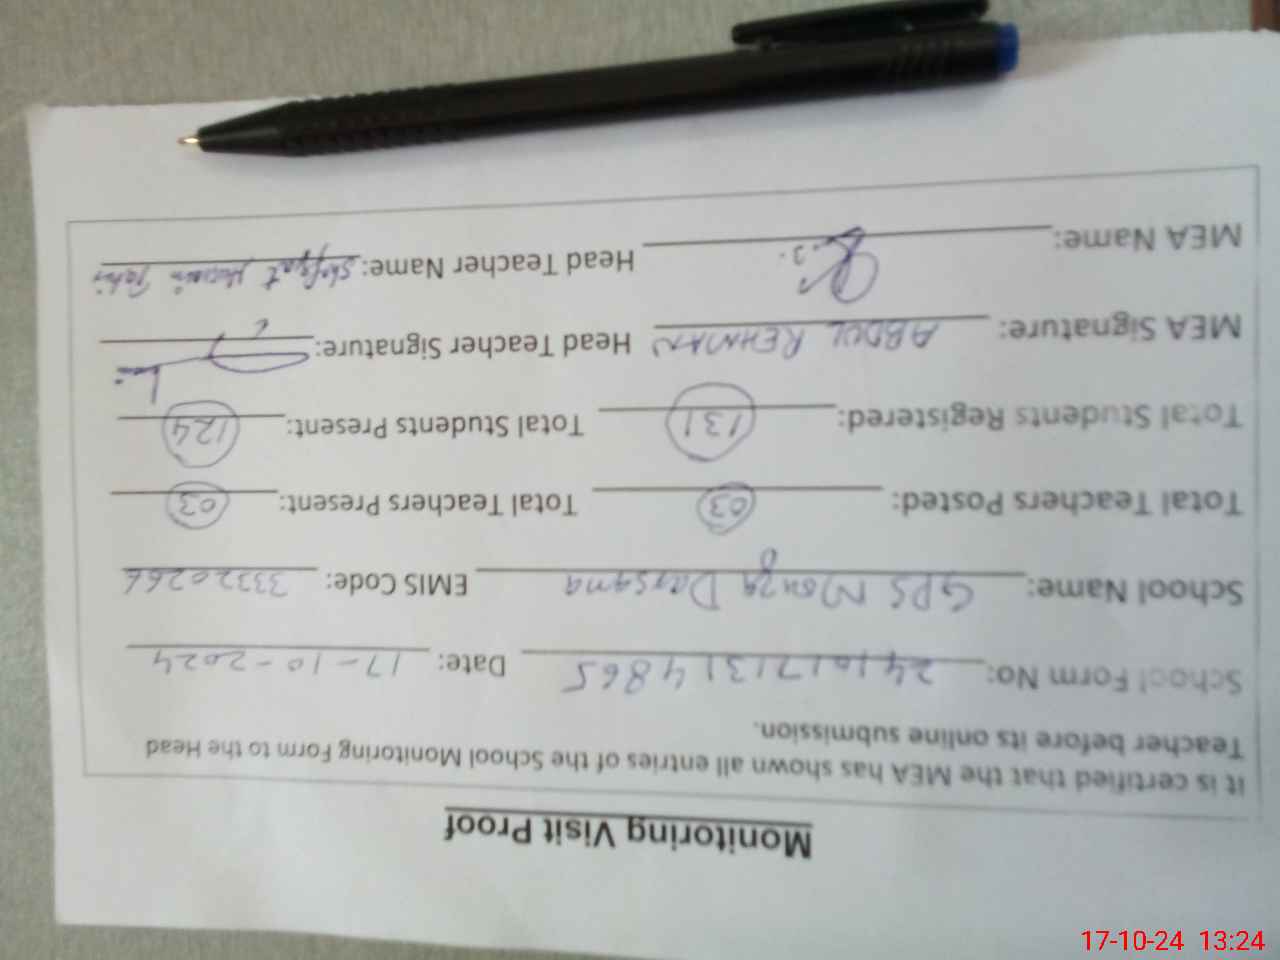 Monitoring Visit Proof
It is certified that the MEA has shown all entries of the School Monitoring Form to the Head
Teacher before its online submission.
School Form No: 241017131 4865 Date: 17-10-2024
School Name: GPS Mouza Darsana EMIS Code: 33320266
Total Teachers Posted: 03 Total Teachers Present: 03
Total Students Registered: 131 Total Students Present: 124
MEA Signature: ABDUL REHMAN Head Teacher Signature:
MEA Name: Head Teacher Name: Shafqat Hussain
17-10-24 13:24